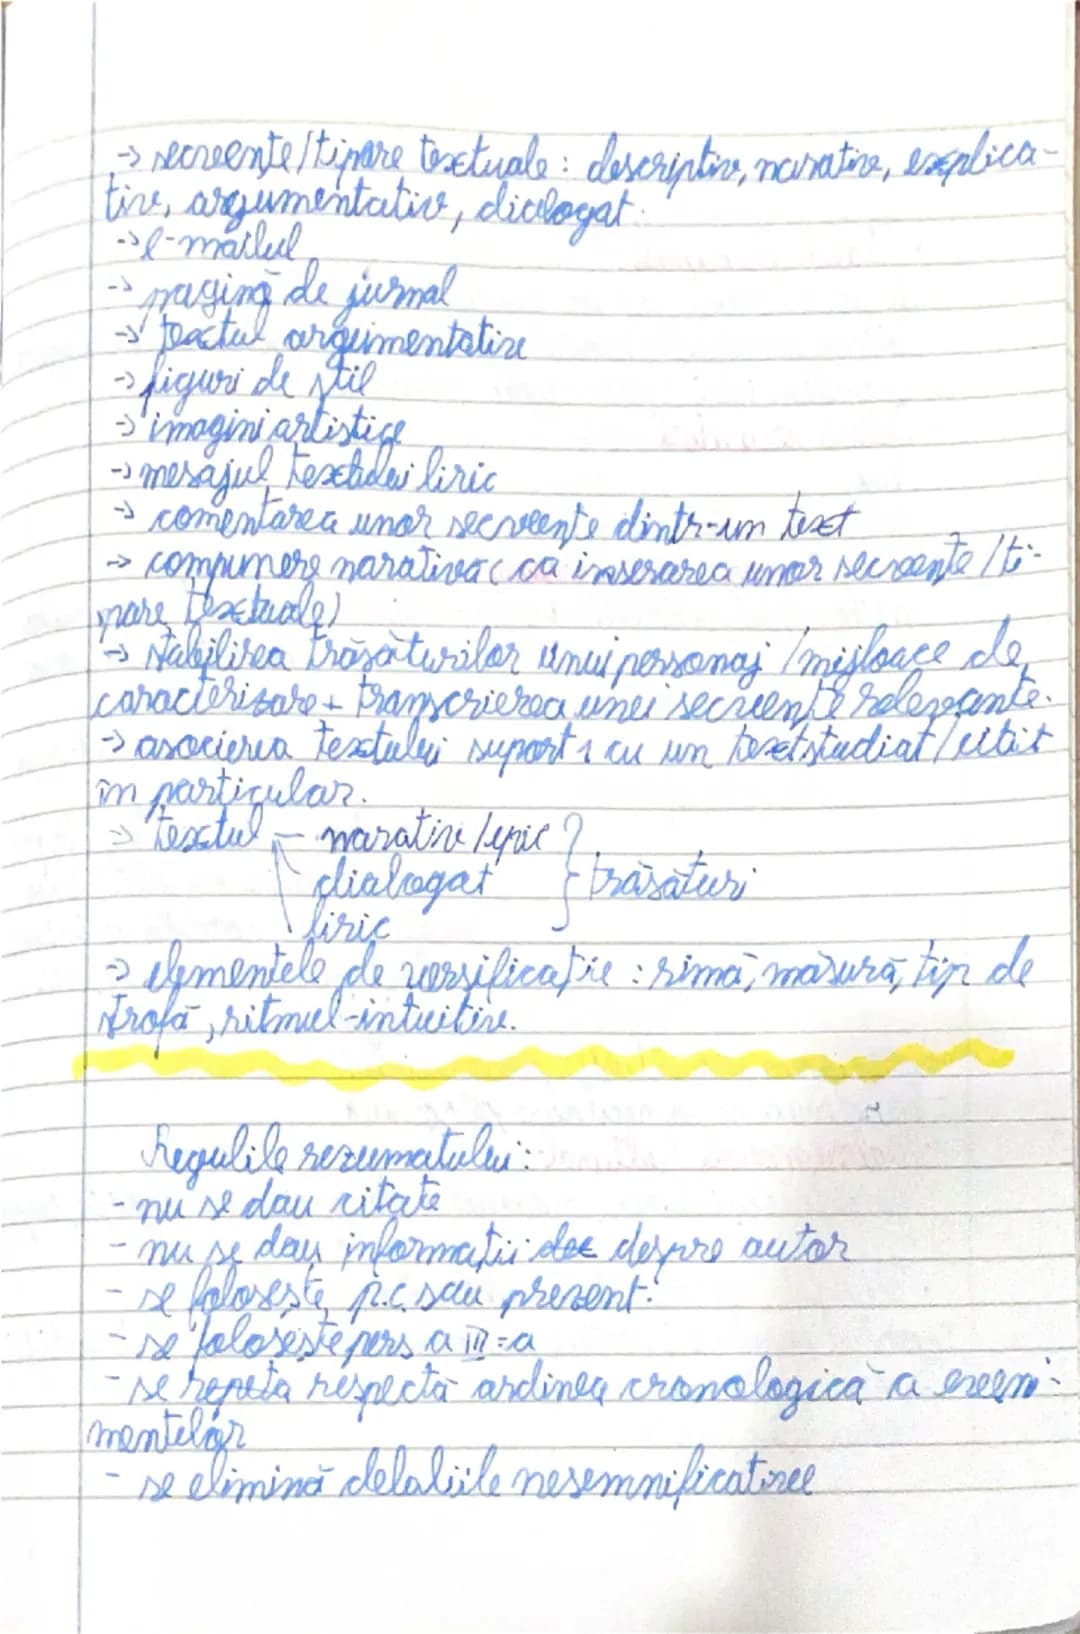 -> secvențe/tipare textuale: descriptiv, narativ, explica-
tiv, argumentativ, dialogat.
-> e-mailul
-> pagină de jurnal
-> textul argumentativ
-> figuri de stil
-> imagini artistice
-> mesajul textului liric
-> comentarea unor secvențe dintr-un text
-> compunere narativă (cu inserarea unor secvențe/ti-
pare textuale)
-> stabilirea trăsăturilor unui personaj/mijloace de
caracterizare + transcrierea unei secvențe relevante.
-> asocierea textului suport 1 cu un text studiat/citit
în particular.
-> textul - narativ/epic
dialogat } trăsături
liric
-> elementele de versificație: rimă, măsură, tip de
strofă, ritmul-intuitiv.
Regulile rezumatului:
- nu se dau citate
- nu se dau informații despre autor
- se folosește p.c. sau prezent.
- se folosește pers a III-a
- se repeta respectă ordinea cronologică a eveni-
mentelor
- se elimină detaliile nesemnificative